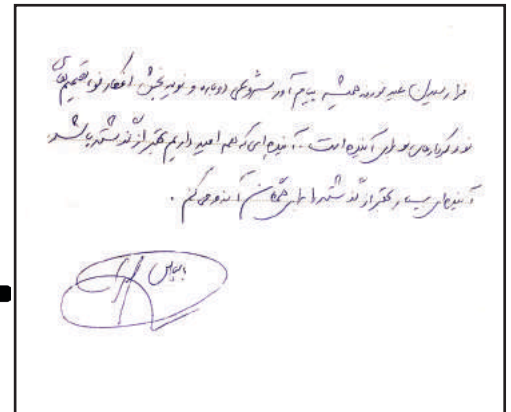 فرا رسیدن عید نوروز همیشه پیام آور شروعی دوباره و نوید بخش افکار نو، تصمیم های
نو و کردارهای نو برای آینده است. آینده ای که همه امید داریم بهتر از گذشته باشد.
آینده ای بسیار بهتر از گذشته را برای همگان آرزو می کنم.
با سپاس